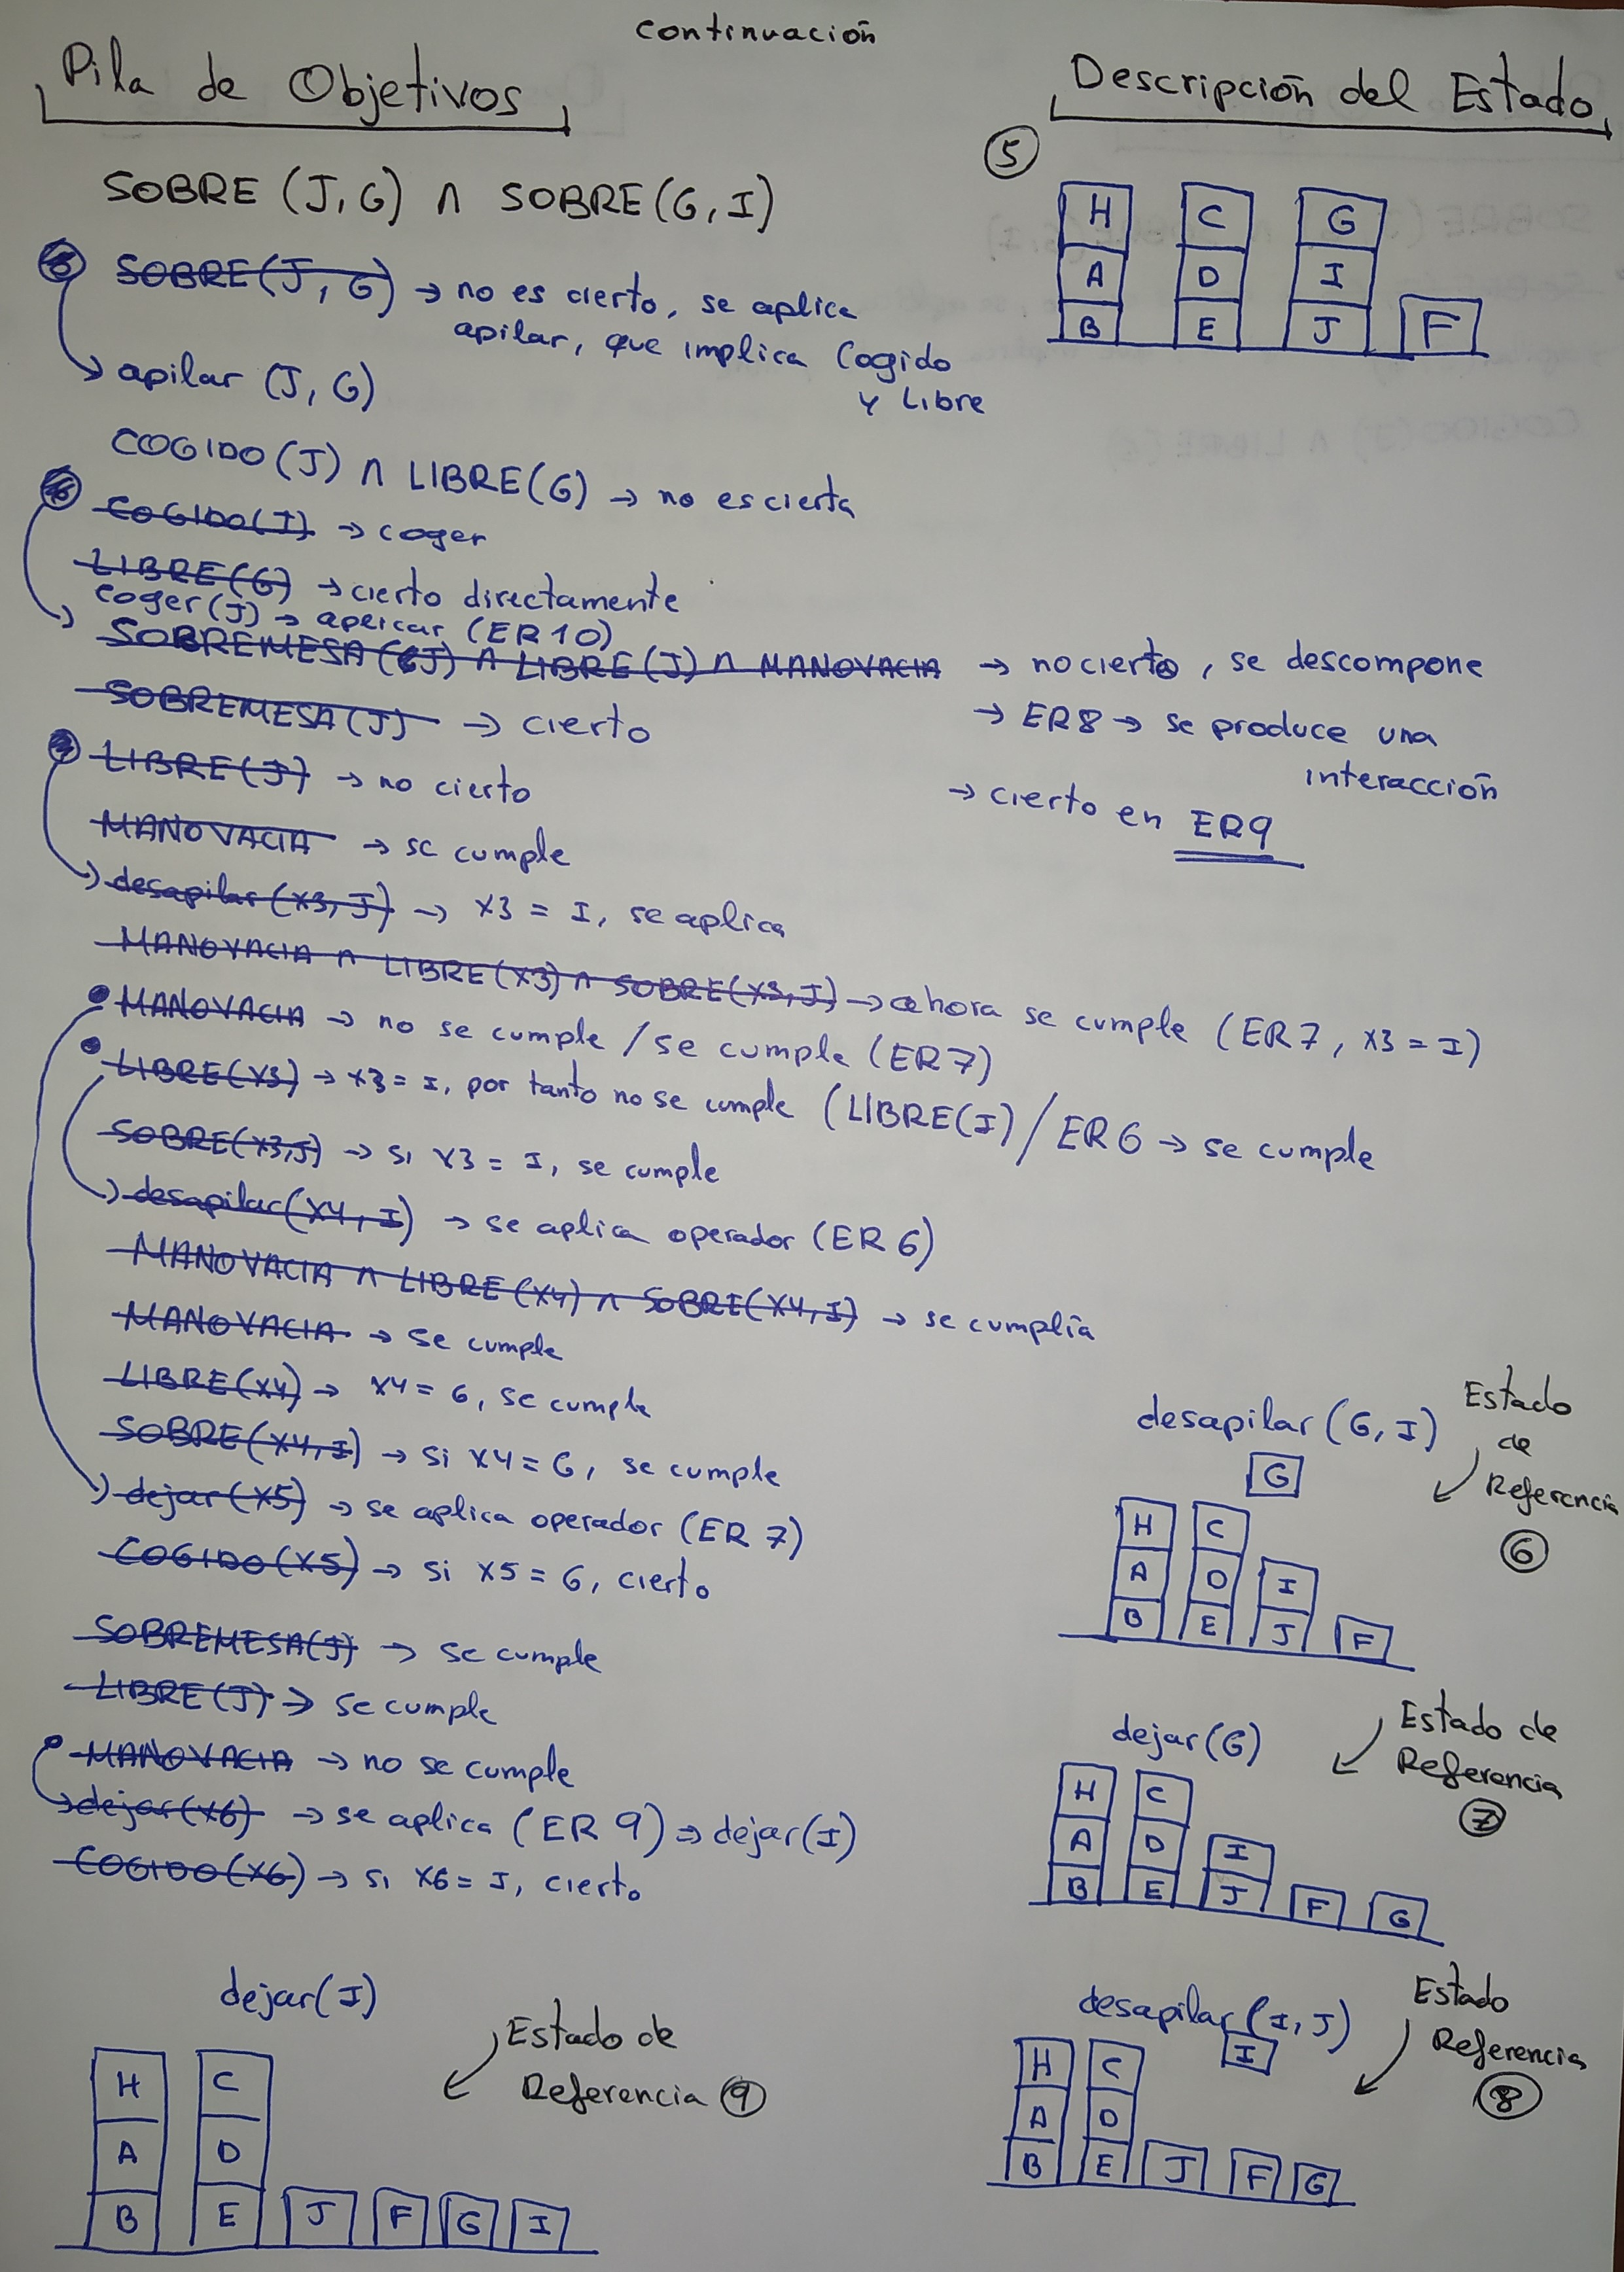 continuación
Pila de Objetivos
Descripción del Estado
SOBRE (J,G) ∧ SOBRE(G,I)
SOBRE(J,G) → no es cierto, se aplica
apilar, que implica Cogido
y Libre
apilar (J,G)
COGIDO(J) ∧ LIBRE(G) → no es cierta
COGIDO(J) → coger
LIBRE(G) → cierto directamente
coger(J) → aplicar (ER10)
SOBREMESA(J) ∧ LIBRE(J) ∧ MANOVACIA → no cierto, se descompone
→ ER8 → se produce una
interacción
→ cierto en ER9
SOBREMESA(J) → cierto
LIBRE(J) → no cierto
MANOVACIA → se cumple
desapilar(x3,J) → x3 = I, se aplica
MANOVACIA ∧ LIBRE(x3) ∧ SOBRE(x3,J) → ahora se cumple (ER7, x3 = I)
MANOVACIA → no se cumple / se cumple (ER7)
LIBRE(x3) → x3 = I, por tanto no se cumple (LIBRE(I) / ER6 → se cumple
SOBRE(x3,J) → si x3 = I, se cumple
desapilar(x4,I) → se aplica operador (ER6)
MANOVACIA ∧ LIBRE(x4) ∧ SOBRE(x4,I) → se cumplía
MANOVACIA → se cumple
LIBRE(x4) → x4 = G, se cumple
SOBRE(x4,I) → si x4 = G, se cumple
dejar(x5) → se aplica operador (ER 7)
COGIDO(x5) → si x5 = G, cierto
SOBREMESA(J) → se cumple
LIBRE(J) → se cumple
MANOVACIA → no se cumple
dejar(x6) → se aplica (ER 9) ⇒ dejar(I)
COGIDO(x6) → si x6 = I, cierto
5
H C G
A D I
B E J F
desapilar (G,I)
Estado
de
Referencia
6
G
H C
A D I
B E J F
dejar(G)
Estado de
Referencia
7
H C
A D I
B E J F G
desapilar (I,J)
Estado
Referencia
8
I
H C
A D
B E J F G
dejar(I)
Estado de
Referencia 9
H C
A D
B E J F G I